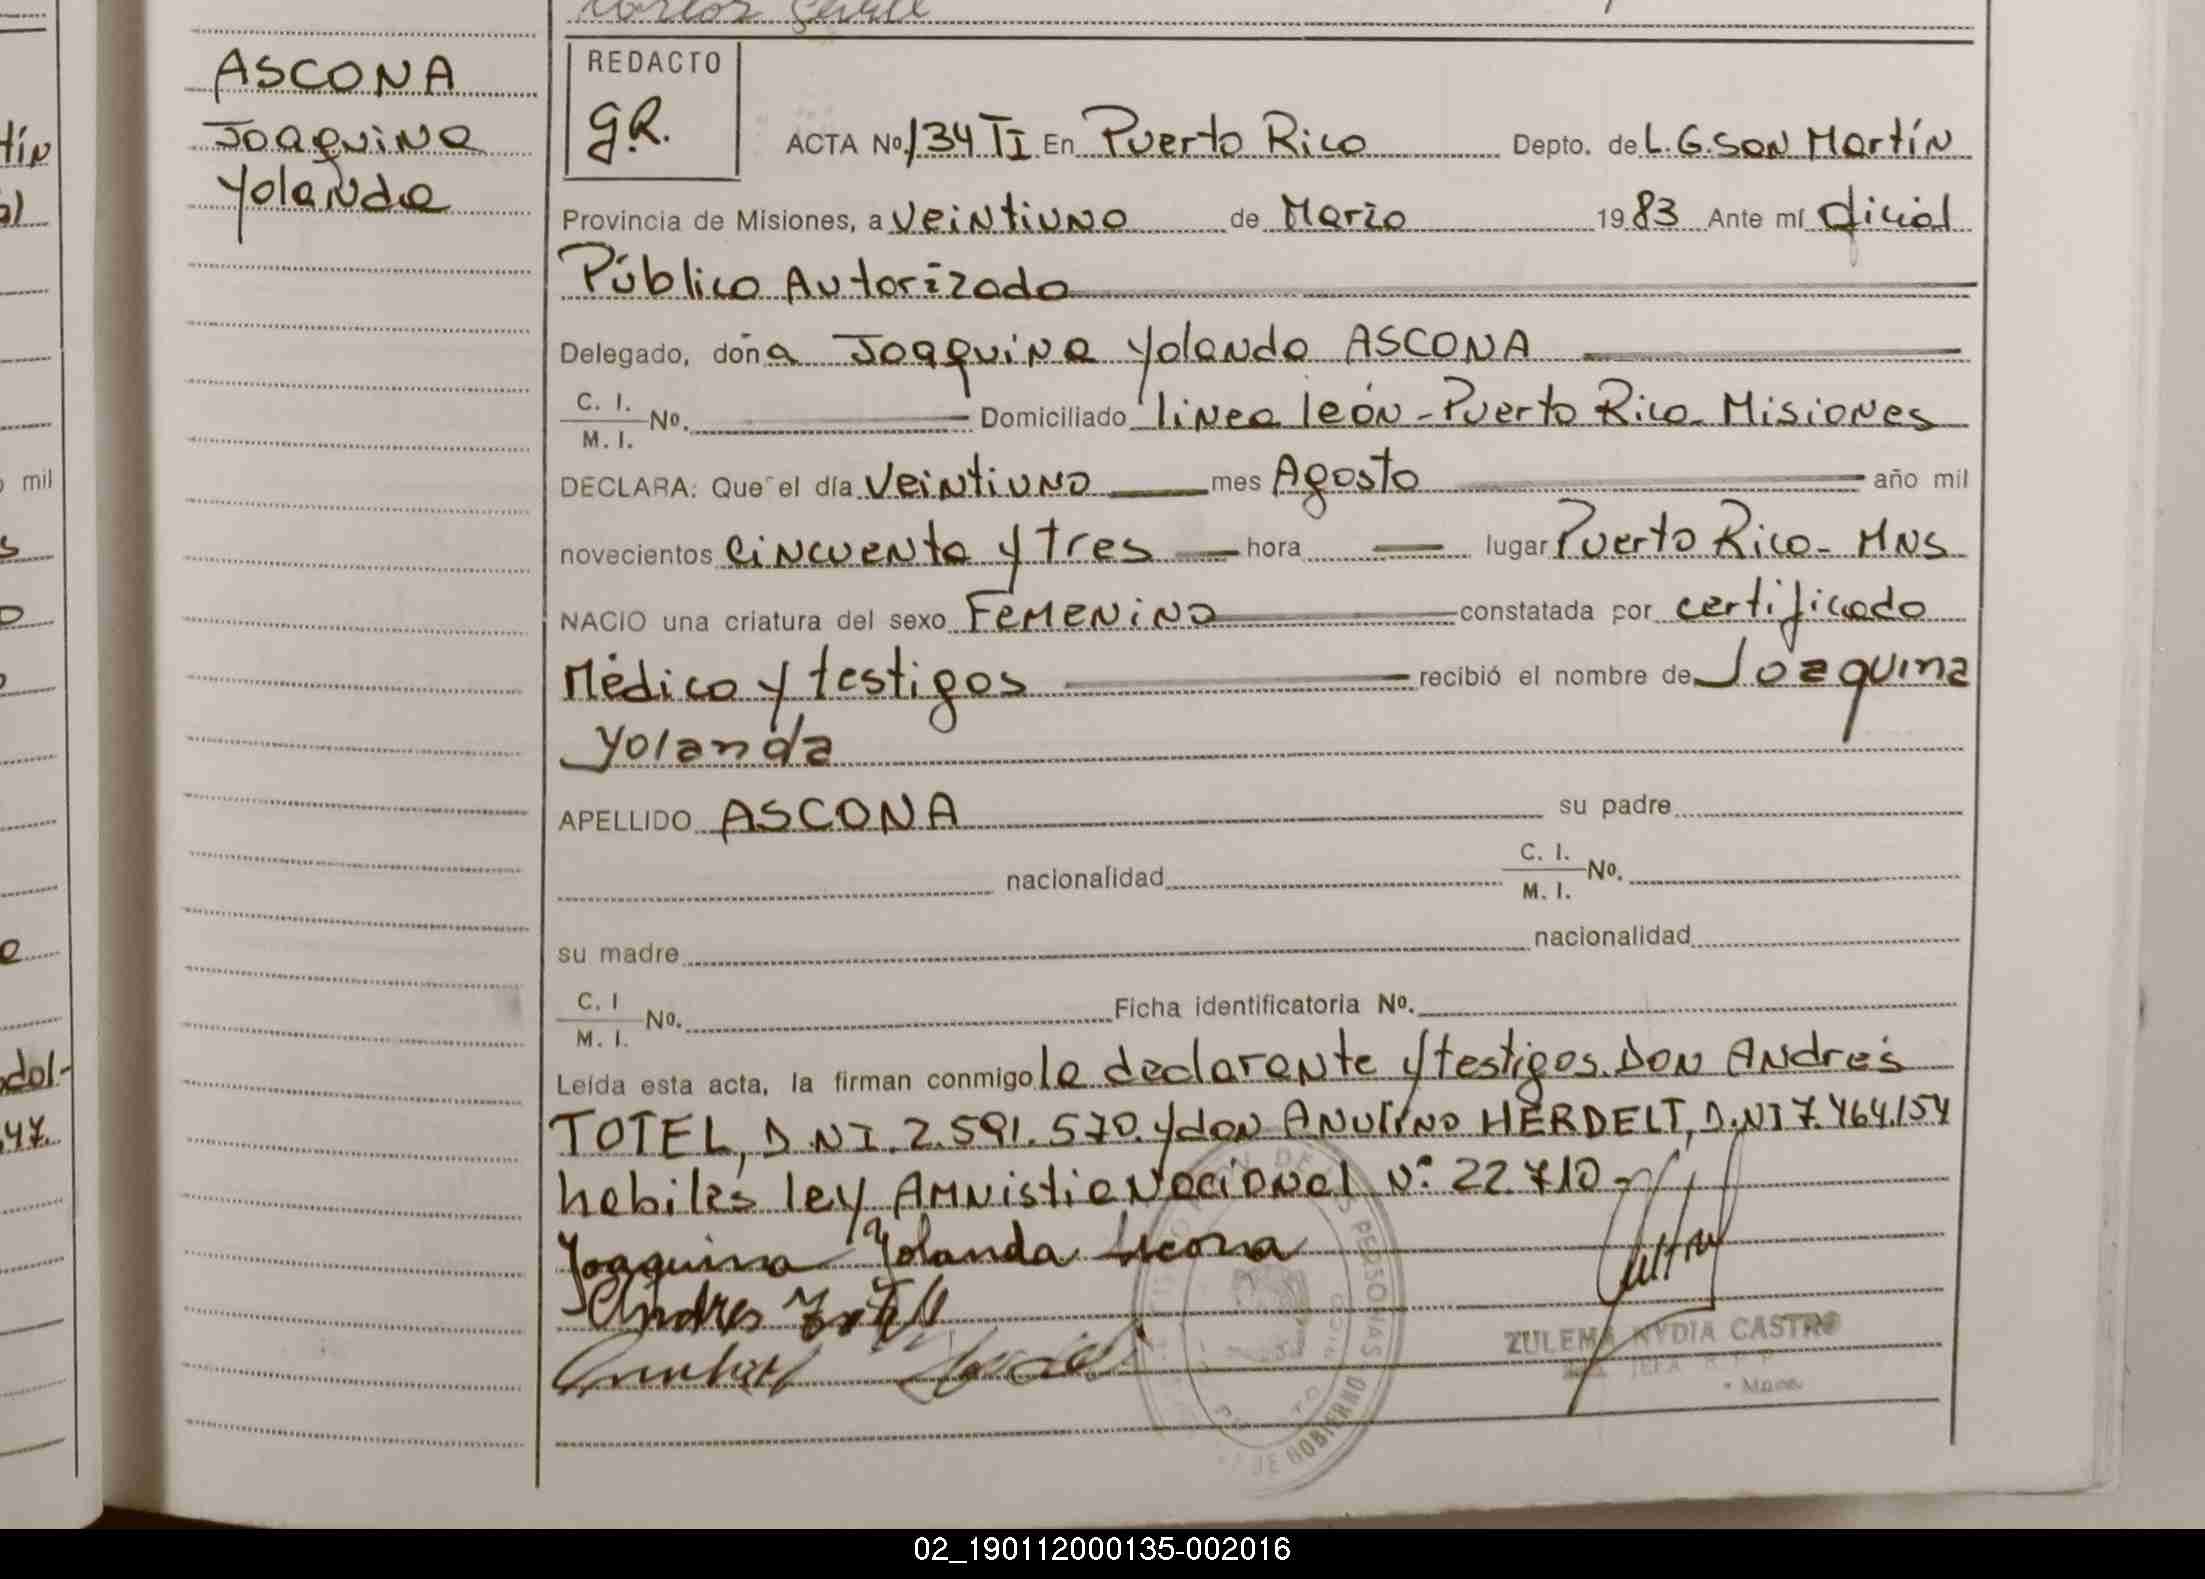 Carlos
ASCONA
Joaquina
Yolanda
REDACTO
G.R.
ACTA No. 134 TI En Puerto Rico Depto. de L. G. San Martín
Provincia de Misiones, a veintiuno de Marzo 1983 Ante mí Oficial
Público Autorizado
Delegado, doña Joaquina Yolanda ASCONA
C. I. M. I. No. Domiciliado línea león - Puerto Rico - Misiones
DECLARA: Que el día veintiuno mes Agosto año mil
novecientos cincuenta y tres hora lugar Puerto Rico - MNS
NACIO una criatura del sexo Femenino constatada por certificado
Médico y testigos recibió el nombre de Joaquina
Yolanda
APELLIDO ASCONA su padre
nacionalidad C. I. M. I. No.
su madre nacionalidad
C. I M. I. No. Ficha identificatoria No.
Leída esta acta, la firman conmigo la declarante y testigos. Don Andrés
TOTEL, D.NI. 2.591.570. y don ANULINO HERDELT, D.NI 7.464.154
habiles ley Amnistia Nacional N: 22.710-
Joaquina Yolanda Ascona
Andres Totel
ZULEMA NYDIA CASTRO
JEFA
DE GOBIERNO
PERSONAS
tín
al
mil
s
o
e
dol-
47.
02_190112000135-002016